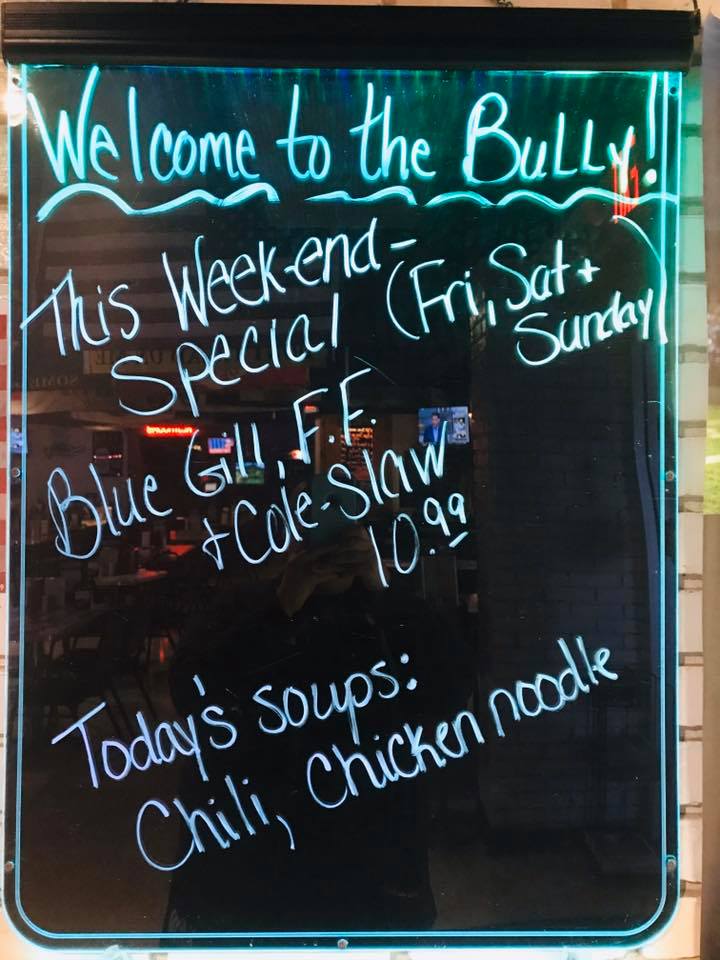 Welcome to the Bully!
This Week-end-
Special (Fri, Sat +
Sunday)
Blue Gill, F.F.
+ Cole-Slaw
10.99
Today's soups:
Chili, Chicken noodle